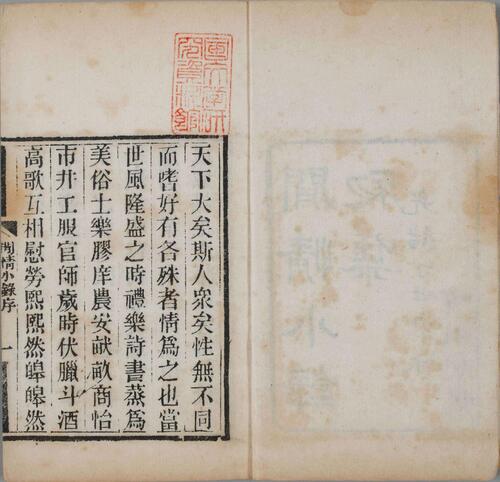 天下大矣斯人衆矣性無不同
而嗜好有各殊者情爲之也當
世風隆盛之時禮樂詩書蒸爲
美俗士樂膠庠農安畎畝商怡
市井工服官師歲時伏臘斗酒
高歌互相慰勞熙熙然皥皥然
閒情小錄序
一